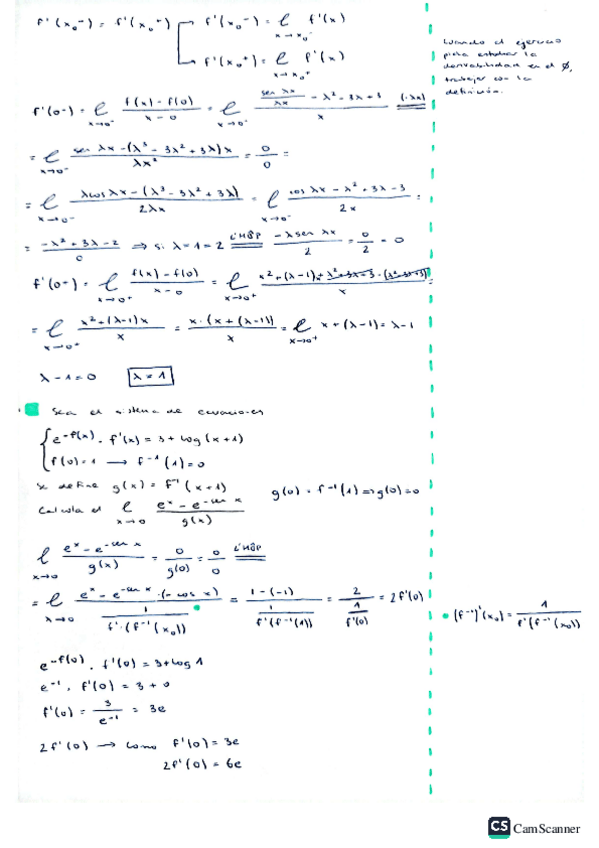 f'(x₀⁻) = f'(x₀⁺) f'(x₀⁻) = ℓ x→x₀⁻ f'(x)
f'(x₀⁺) = ℓ x→x₀⁺ f'(x)
Cuando el ejercicio
pida estudiar la
derivabilidad en el 0,
trabajar con la
definición.
f'(0⁻) = ℓ x→0⁻ (f(x) - f(0))/(x - 0) = ℓ x→0⁻ (sen λx/λx - λ² - 3λ + 3)/x (·λx)
= ℓ x→0⁻ (sen λx - (λ³ - 3λ² + 3λ)x)/λx² = 0/0 =
= ℓ x→0⁻ (λcos λx - (λ³ - 3λ² + 3λ))/2λx = ℓ x→0⁻ (cos λx - λ² + 3λ - 3)/2x =
= (-λ² + 3λ - 2)/0 ⇒ si λ = 1 = 2 L'HÔP (-λ sen λx)/2 = 0/2 = 0
f'(0-) = ℓ x→0⁺ (f(x) - f(0))/(x - 0) = ℓ x→0⁺ (x² + (λ-1)x + λ² + 3λ - 3 - (λ² - 3λ + 3))/x =
= ℓ x→0⁺ (x² + (λ-1)x)/x = x·(x + (λ-1))/x = ℓ x→0⁺ x + (λ-1) = λ-1
λ - 1 = 0 λ = 1
Sea el sistema de ecuaciones
{ e^-f(x) · f'(x) = 3 + log(x+1)
f(0) = 1 → f⁻¹(1) = 0
Se define g(x) = f⁻¹(x+1) g(0) = f⁻¹(1) ⇒ g(0) = 0
Calcula el ℓ x→0 (e^x - e^-sen x)/g(x)
ℓ x→0 (e^x - e^-sen x)/g(x) = 0/g(0) = 0/0 L'HÔP
= ℓ x→0 (e^x - e^-sen x · (- cos x))/(1/(f'·(f⁻¹(x₀)))) = (1 - (-1))/(1/(f'(f⁻¹(1)))) = 2/(1/f'(0)) = 2f'(0)
(f⁻¹)'(x₀) = 1/(f'(f⁻¹(x₀)))
e^-f(0) · f'(0) = 3 + log 1
e⁻¹ · f'(0) = 3 + 0
f'(0) = 3/e⁻¹ = 3e
2f'(0) → como f'(0) = 3e
2f'(0) = 6e
CS CamScanner